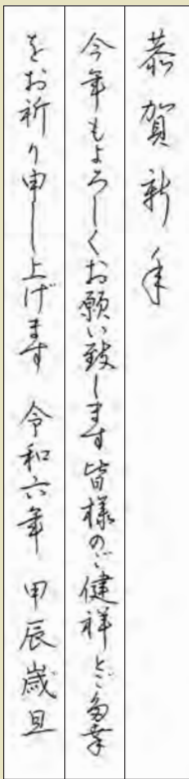 恭賀新年
今年もよろしくお願い致します 皆様のご健祥とご多幸
をお祈り申し上げます 令和六年 甲辰歳旦